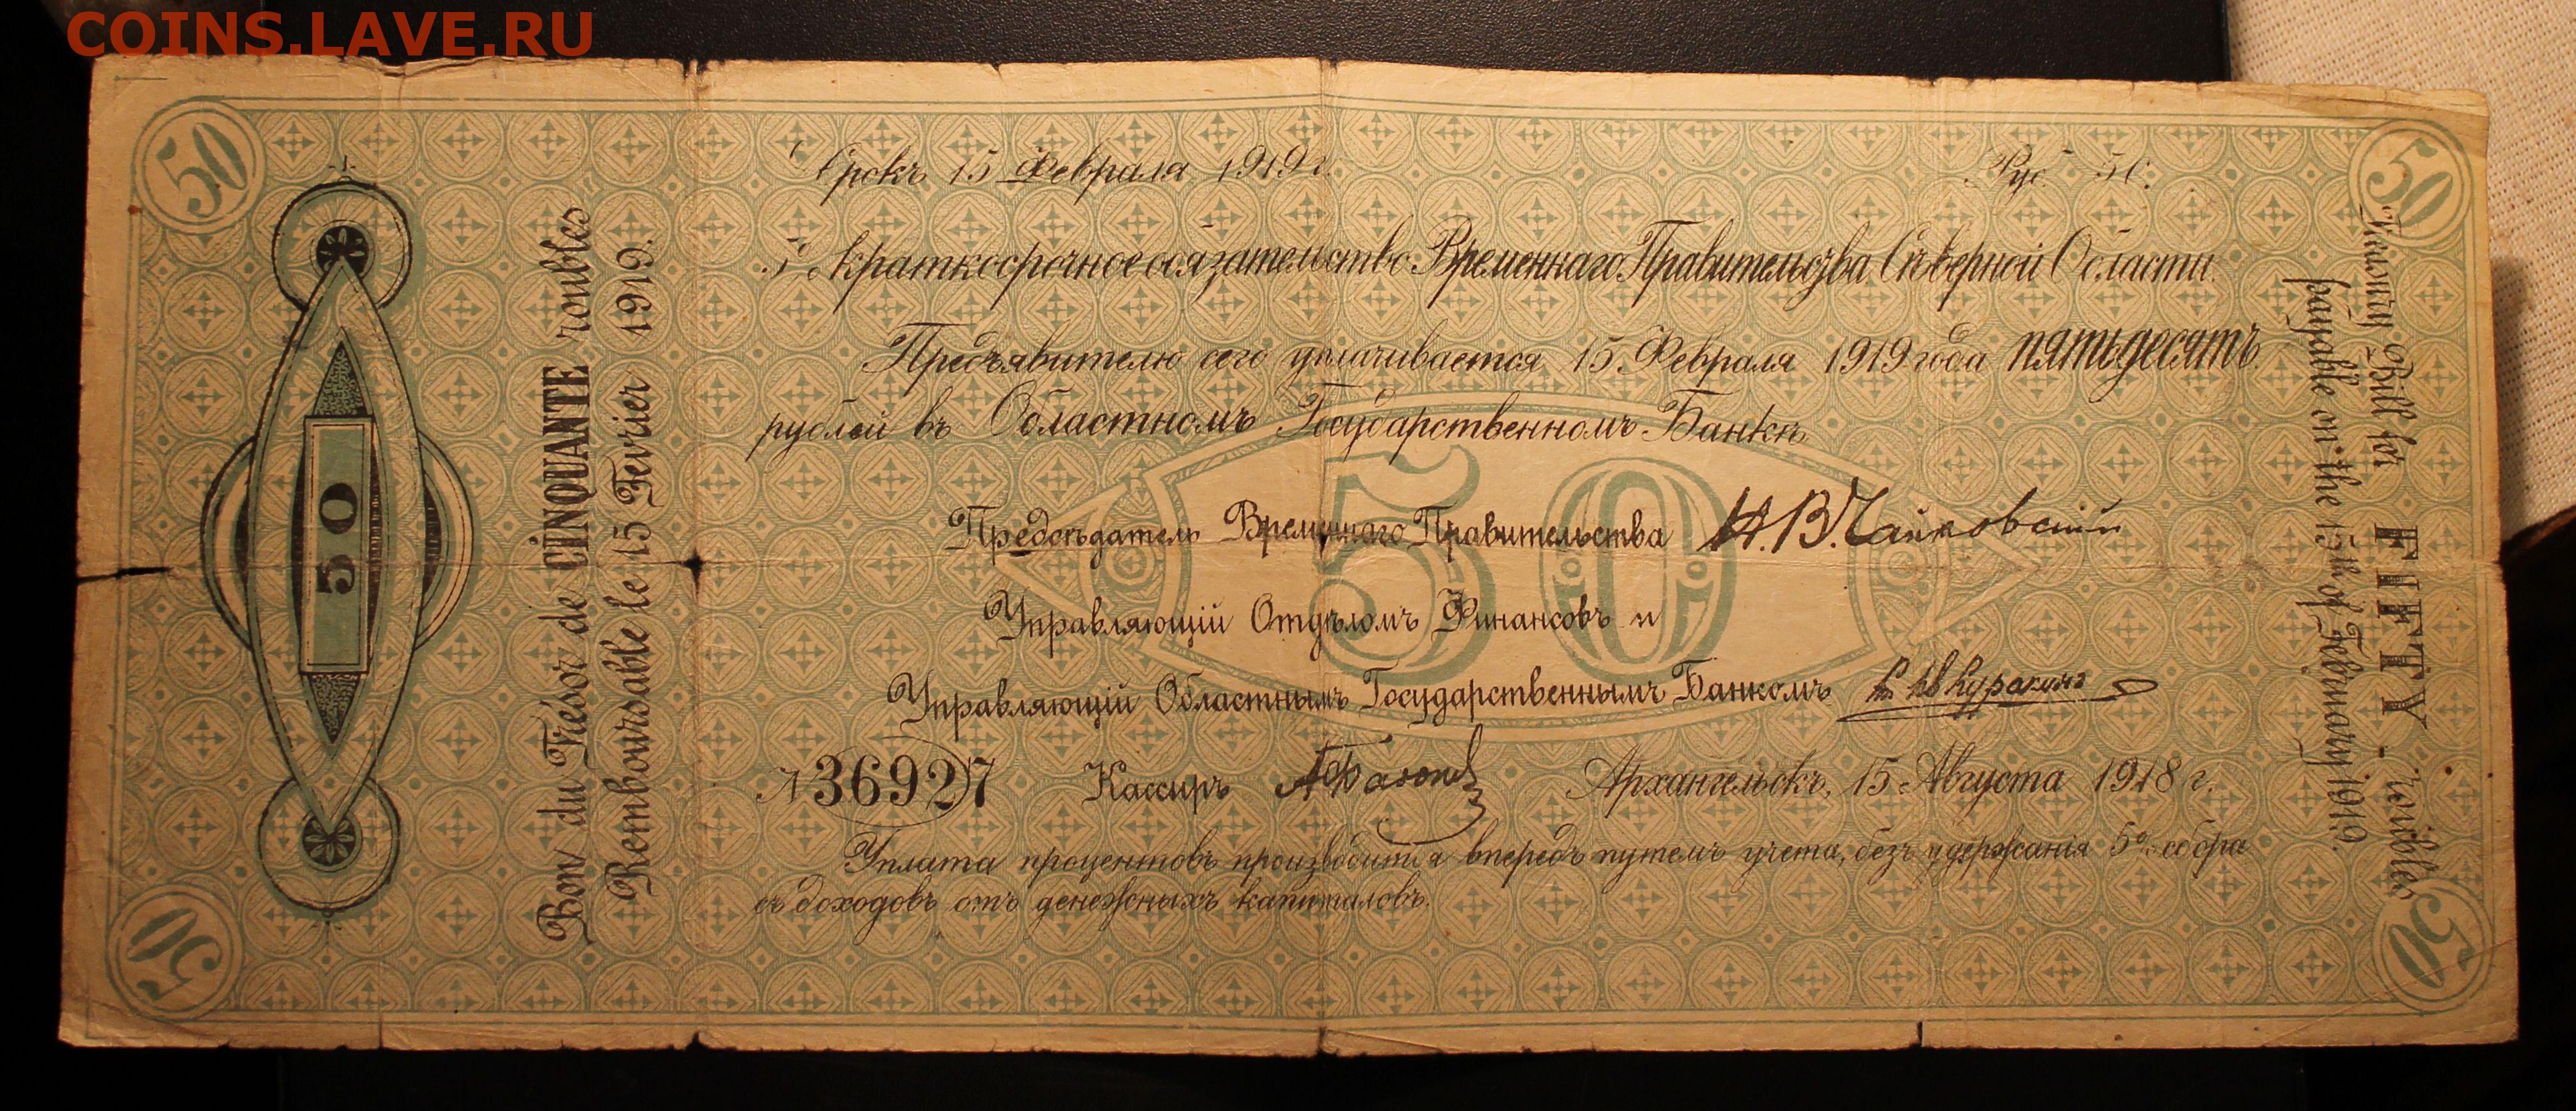 COINS.LAVE.RU
50
50
Срокъ 15 Февраля 1919 г.
Руб. 50.
5% краткосрочное обязательство Временнаго Правительства Сѣверной Области.
Предъявителю сего уплачивается 15 Февраля 1919 года ПЯТЬДЕСЯТЪ
рублей въ Областномъ Государственномъ Банкѣ
50
Предсѣдатель Временнаго Правительства Н.В. Чайковскій
Управляющій Отдѣломъ Финансовъ и
Управляющій Областнымъ Государственнымъ Банкомъ Куракинъ
№ 36927 Кассиръ
Архангельскъ, 15 Августа 1918 г.
Уплата процентовъ производится впередъ путемъ учета, безъ удержанія 5% сбора
съ доходовъ отъ денежныхъ капиталовъ.
50
Bon du Trésor de CINQUANTE roubles
Remboursable le 15 Fevrier 1919.
Treasury Bill for FIFTY - roubles
payable on the 15th of February 1919.
50
50